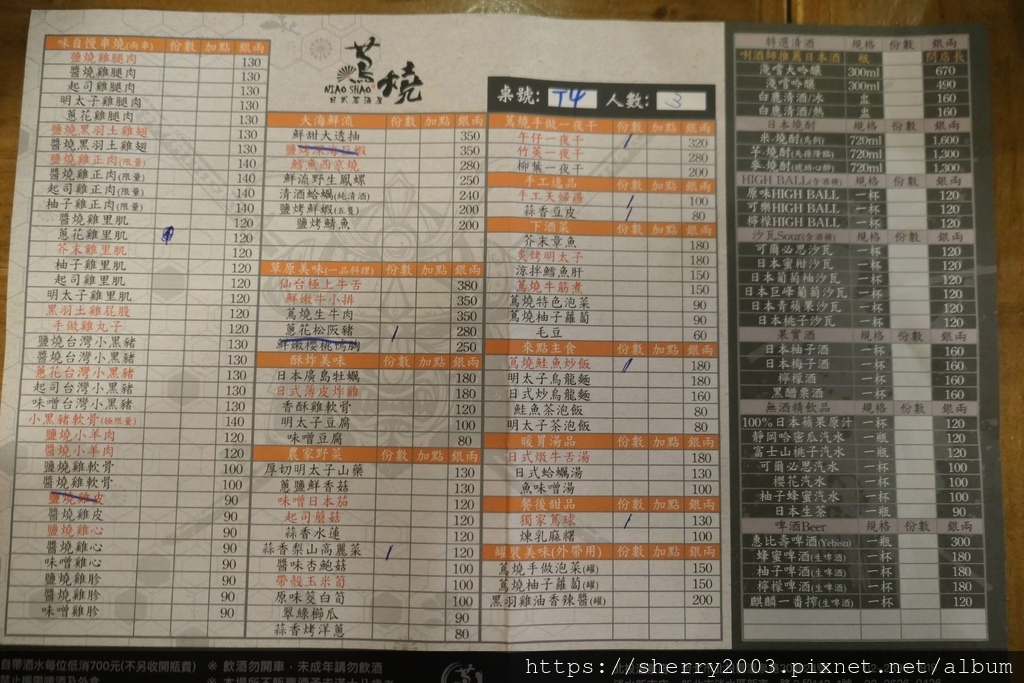 味自慢串燒(兩串) 份數 加點 銀兩
鹽燒雞腿肉 130
醬燒雞腿肉 130
起司雞腿肉 130
明太子雞腿肉 130
蔥花雞腿肉 130
鹽燒黑羽土雞翅 130
醬燒黑羽土雞翅 130
鹽燒雞正肉(限量) 140
醬燒雞正肉(限量) 140
起司雞正肉(限量) 140
柚子雞正肉(限量) 140
醬燒雞里肌 120
蔥花雞里肌 120
芥末雞里肌 120
柚子雞里肌 120
起司雞里肌 120
明太子雞里肌 120
黑羽土雞屁股 120
手做雞丸子 120
鹽燒台灣小黑豬 130
醬燒台灣小黑豬 130
蔥花台灣小黑豬 130
起司台灣小黑豬 130
味噌台灣小黑豬 130
小黑豬軟骨(極限量) 140
鹽燒小羊肉 120
醬燒小羊肉 120
鹽燒雞軟骨 100
醬燒雞軟骨 100
鹽燒雞皮 90
醬燒雞皮 90
鹽燒雞心 90
醬燒雞心 90
味噌雞心 90
鹽燒雞胗 90
醬燒雞胗 90
味噌雞胗 90
蔦燒
NIAO SHAO
日式居酒屋
大海鮮流 份數 加點 銀兩
鮮甜大透抽 350
350
鱈魚西京燒 280
鮮流野生鳳螺 250
清酒蛤蠣(純清酒) 240
鹽烤鮮蝦(五隻) 200
鹽烤鯖魚 200
草原美味(一品料理) 份數 加點 銀兩
仙台極上牛舌 380
鮮嫩牛小排 350
蔦燒生牛肉 350
蔥花松阪豬 280
鮮嫩櫻桃鴨胸 250
酥炸美味 份數 加點 銀兩
日本廣島牡蠣 180
日式薄皮炸雞 180
香酥雞軟骨 120
明太子豆腐 100
味噌豆腐 80
農家野菜 份數 加點 銀兩
厚切明太子山藥 130
蔥鹽鮮香菇 130
味噌日本茄 120
起司蘑菇 120
蒜香水蓮 120
蒜香梨山高麗菜 120
醬味杏鮑菇 100
帶殼玉米筍 100
原味茭白筍 100
翠綠櫛瓜 90
蒜香烤洋蔥 80
桌號: T4 人數: 3
蔦燒手做一夜干 份數 加點 銀兩
午仔一夜干 320
竹莢一夜干 280
柳葉一夜干 200
手工逸品 份數 加點 銀兩
手工天婦羅 100
蒜香豆皮 80
下酒菜 份數 加點 銀兩
芥末章魚 180
炙烤明太子 180
涼拌鱈魚肝 150
蔦燒牛筋煮 150
蔦燒特色泡菜 90
蔦燒柚子蘿蔔 90
毛豆 60
來點主食 份數 加點 銀兩
蔦燒鮭魚炒飯 180
明太子烏龍麵 180
日式炒烏龍麵 180
鮭魚茶泡飯 80
明太子茶泡飯 80
暖胃湯品 份數 加點 銀兩
日式燉牛舌湯 180
日式蛤蠣湯 130
魚味噌湯 100
餐後甜品 份數 加點 銀兩
獨家蔦球 130
煉乳麻糬 100
罐裝美味(外帶用) 份數 加點 銀兩
蔦燒手做泡菜(罐) 150
蔦燒柚子蘿蔔(罐) 150
黑羽雞油香辣醬(罐) 200
特選清酒 規格 份數 銀兩
唎酒師推薦日本酒 瓶 問店長
淺嚐大吟釀 300ml 670
淺嚐吟釀 300ml 490
白鹿清酒/冰 壺 160
白鹿清酒/熱 壺 160
日本燒酎 規格 份數 銀兩
720ml 1,600
720ml 1,300
720ml 1,300
HIGH BALL(含酒精) 規格 份數 銀兩
原味HIGH BALL 一杯 120
可樂HIGH BALL 一杯 120
檸檬HIGH BALL 一杯 120
沙瓦Sour(含酒精) 規格 份數 銀兩
可爾必思沙瓦 一杯 120
日本蜜柑沙瓦 一杯 120
日本葡萄柚沙瓦 一杯 120
日本巨峰葡萄沙瓦 一杯 120
日本青蘋果沙瓦 一杯 120
日本桃子沙瓦 一杯 120
果實酒 規格 份數 銀兩
日本柚子酒 一杯 160
日本梅子酒 一杯 160
檸檬酒 一杯 160
黑醋栗酒 一杯 160
無酒精飲品 規格 份數 銀兩
100%日本蘋果原汁 一杯 120
靜岡哈密瓜汽水 一瓶 120
富士山桃子汽水 一瓶 120
可爾必思汽水 一杯 100
櫻花汽水 一杯 100
柚子蜂蜜汽水 一杯 100
日本生茶 一瓶 90
啤酒Beer 規格 份數 銀兩
惠比壽啤酒(Yebisu) 一瓶 300
蜂蜜啤酒(生啤酒) 一杯 180
柚子啤酒(生啤酒) 一杯 180
檸檬啤酒(生啤酒) 一杯 180
麒麟一番搾(生啤酒) 一杯 120
自帶酒水每位低消700元(不另收開瓶費) ※ 飲酒勿開車,未成年請勿飲酒
https://sherry2003.pixnet.net/album